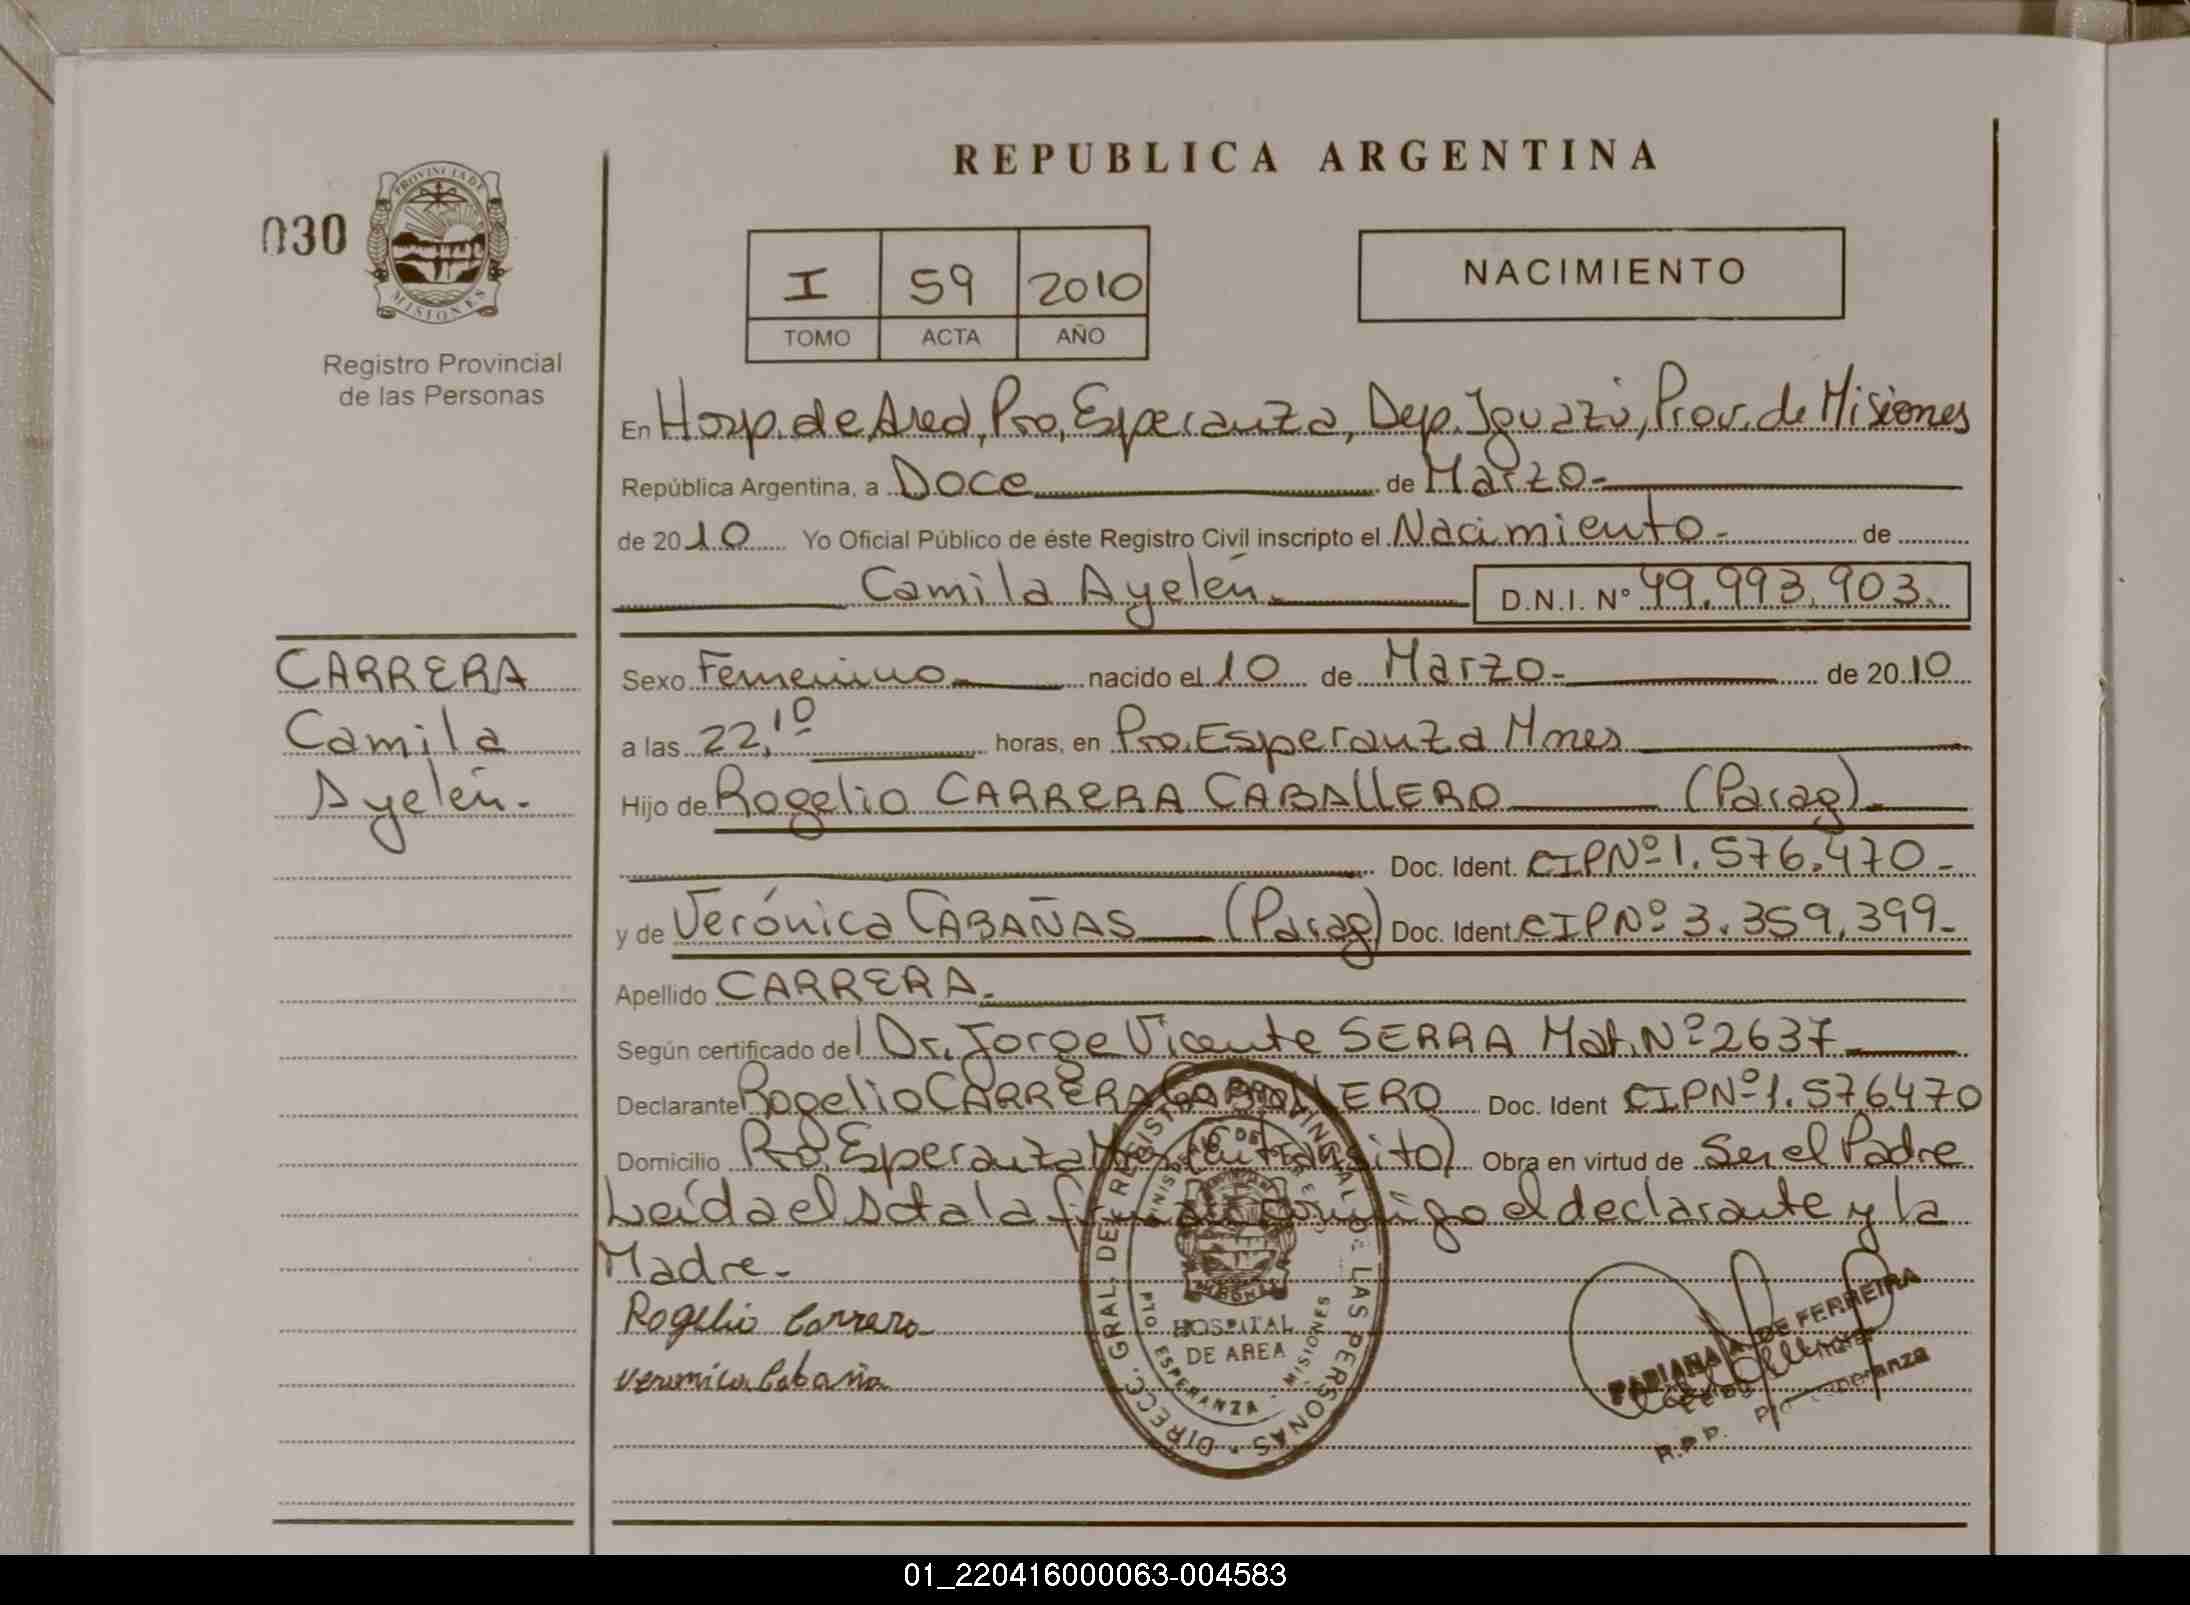 REPUBLICA ARGENTINA
030
PROVINCIA DE
MISIONES
Registro Provincial
de las Personas
I 59 2010
TOMO ACTA AÑO
NACIMIENTO
En Hosp. de Area, Pto. Esperanza, Dep. Iguazú, Prov. de Misiones
República Argentina, a Doce de Marzo-
de 2010 Yo Oficial Público de éste Registro Civil inscripto el Nacimiento- de
Camila Ayelén- D.N.I. N° 49.993.903.
CARRERA
Camila
Ayelén-
Sexo Femenino nacido el 10 de Marzo- de 2010
a las 22,10 horas, en Pto. Esperanza Mnes
Hijo de Rogelio CARRERA CABALLERO (Parag)-
Doc. Ident. CIPNº 1.576.470-
y de Verónica CABAÑAS (Parag) Doc. Ident. CIPNº 3.359.399-
Apellido CARRERA-
Según certificado del Dr. Jorge Vicente SERRA Mat. Nº 2637
Declarante Rogelio CARRERA CABALLERO Doc. Ident CIPNº 1.576470
Domicilio Pto. Esperanza (en tránsito) Obra en virtud de Ser el Padre
Leída el Acta la firman conmigo el declarante y la
Madre-
Rogelio Carrera
Veronica Cabaña
DIRECC. GRAL. DEL REGISTRO PROVINCIAL DE LAS PERSONAS
HOSPITAL
DE AREA
PTO ESPERANZA - MISIONES
FABIANA A. DE FERREIRA
R.P.P. Pto Esperanza
01_220416000063-004583